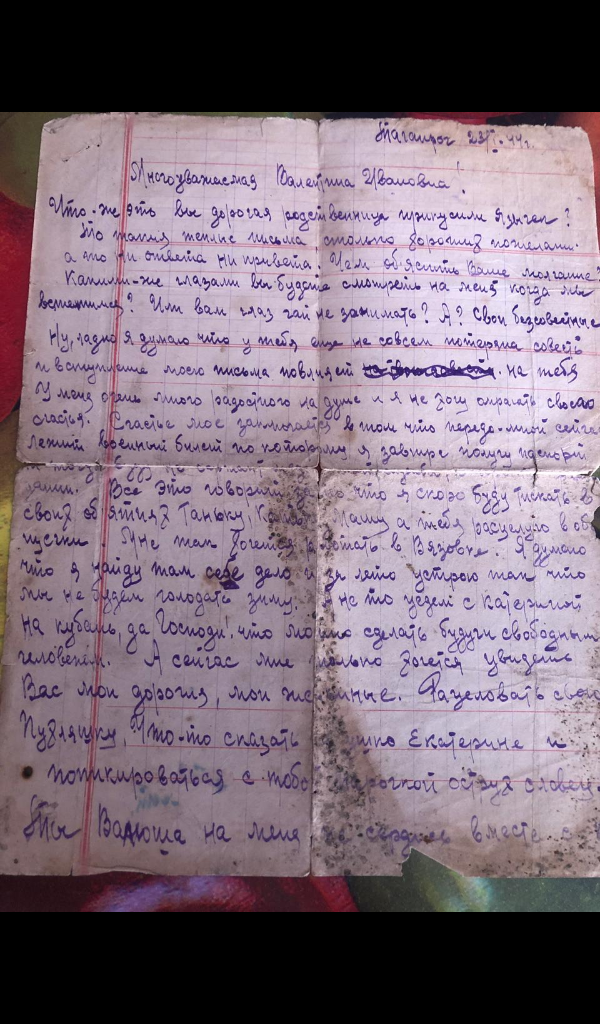 Таганрог 23/VI-44г.
Многоуважаемая Валентина Ивановна!
Что-же эть вы дорогая родственница прикусили язычек?
То такия теплыс письма столько хороших пожелани.
а то ни ответа ни привета. Чем об'яснить Ваше молчание?
Какими-же глазами вы будете смотреть на меня когда мы
встетимся? Или вам глаз чай не занимать? А? Свои безсовестные
Ну, ладно я думаю что у тебя еще не совсем потеряна совесть
и вступление моего письма повлияет на тебя
У меня очень много радостного на душе и я не хочу омрачать своего
счастья. Счастье мое заключается в том что передо-мной сейчас
лежит военный билет по которому я завтре получу паспорт
Все это говорит что я скоро буду тискать в
своих об'ятиях Таньку, Машу а тебя расцелую в об
пусчки Мне так хочется работать в Вязовке. Я думаю
что я найду там себе дело и за лето устрою так что
мы не будем голодать зиму. не то уедем с Катериной
на кубань, да Господи! что можно сделать будучи свободным
человеком. А сейчас мне только хочется увидеть
Вас мои дорогия, мои Расцеловать свою
Пузляшку, Что-то сказать Екатерине и
попикироваться с тобо острых словец.
Ты Вадюша на меня не сердись вместе с